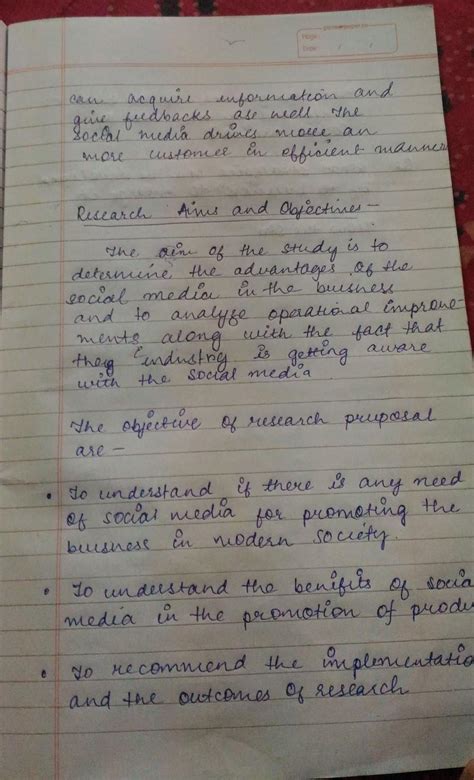 Page:
Date: / /
can acquire information and
give feedbacks as well. The
social media drives more an
more customer in efficient manner
Research Aims and Objectives -
The aim of the study is to
determine the advantages of the
social media in the business
and to analyze operational improve
ments along with the fact that
they industry is getting aware
with the social media
The objective of research pruposal
are -
• To understand if there is any need
of social media for promoting the
business in modern society.
• To understand the benifits of socia
media in the promotion of produ
• To recommend the implementatio
and the outcomes of research